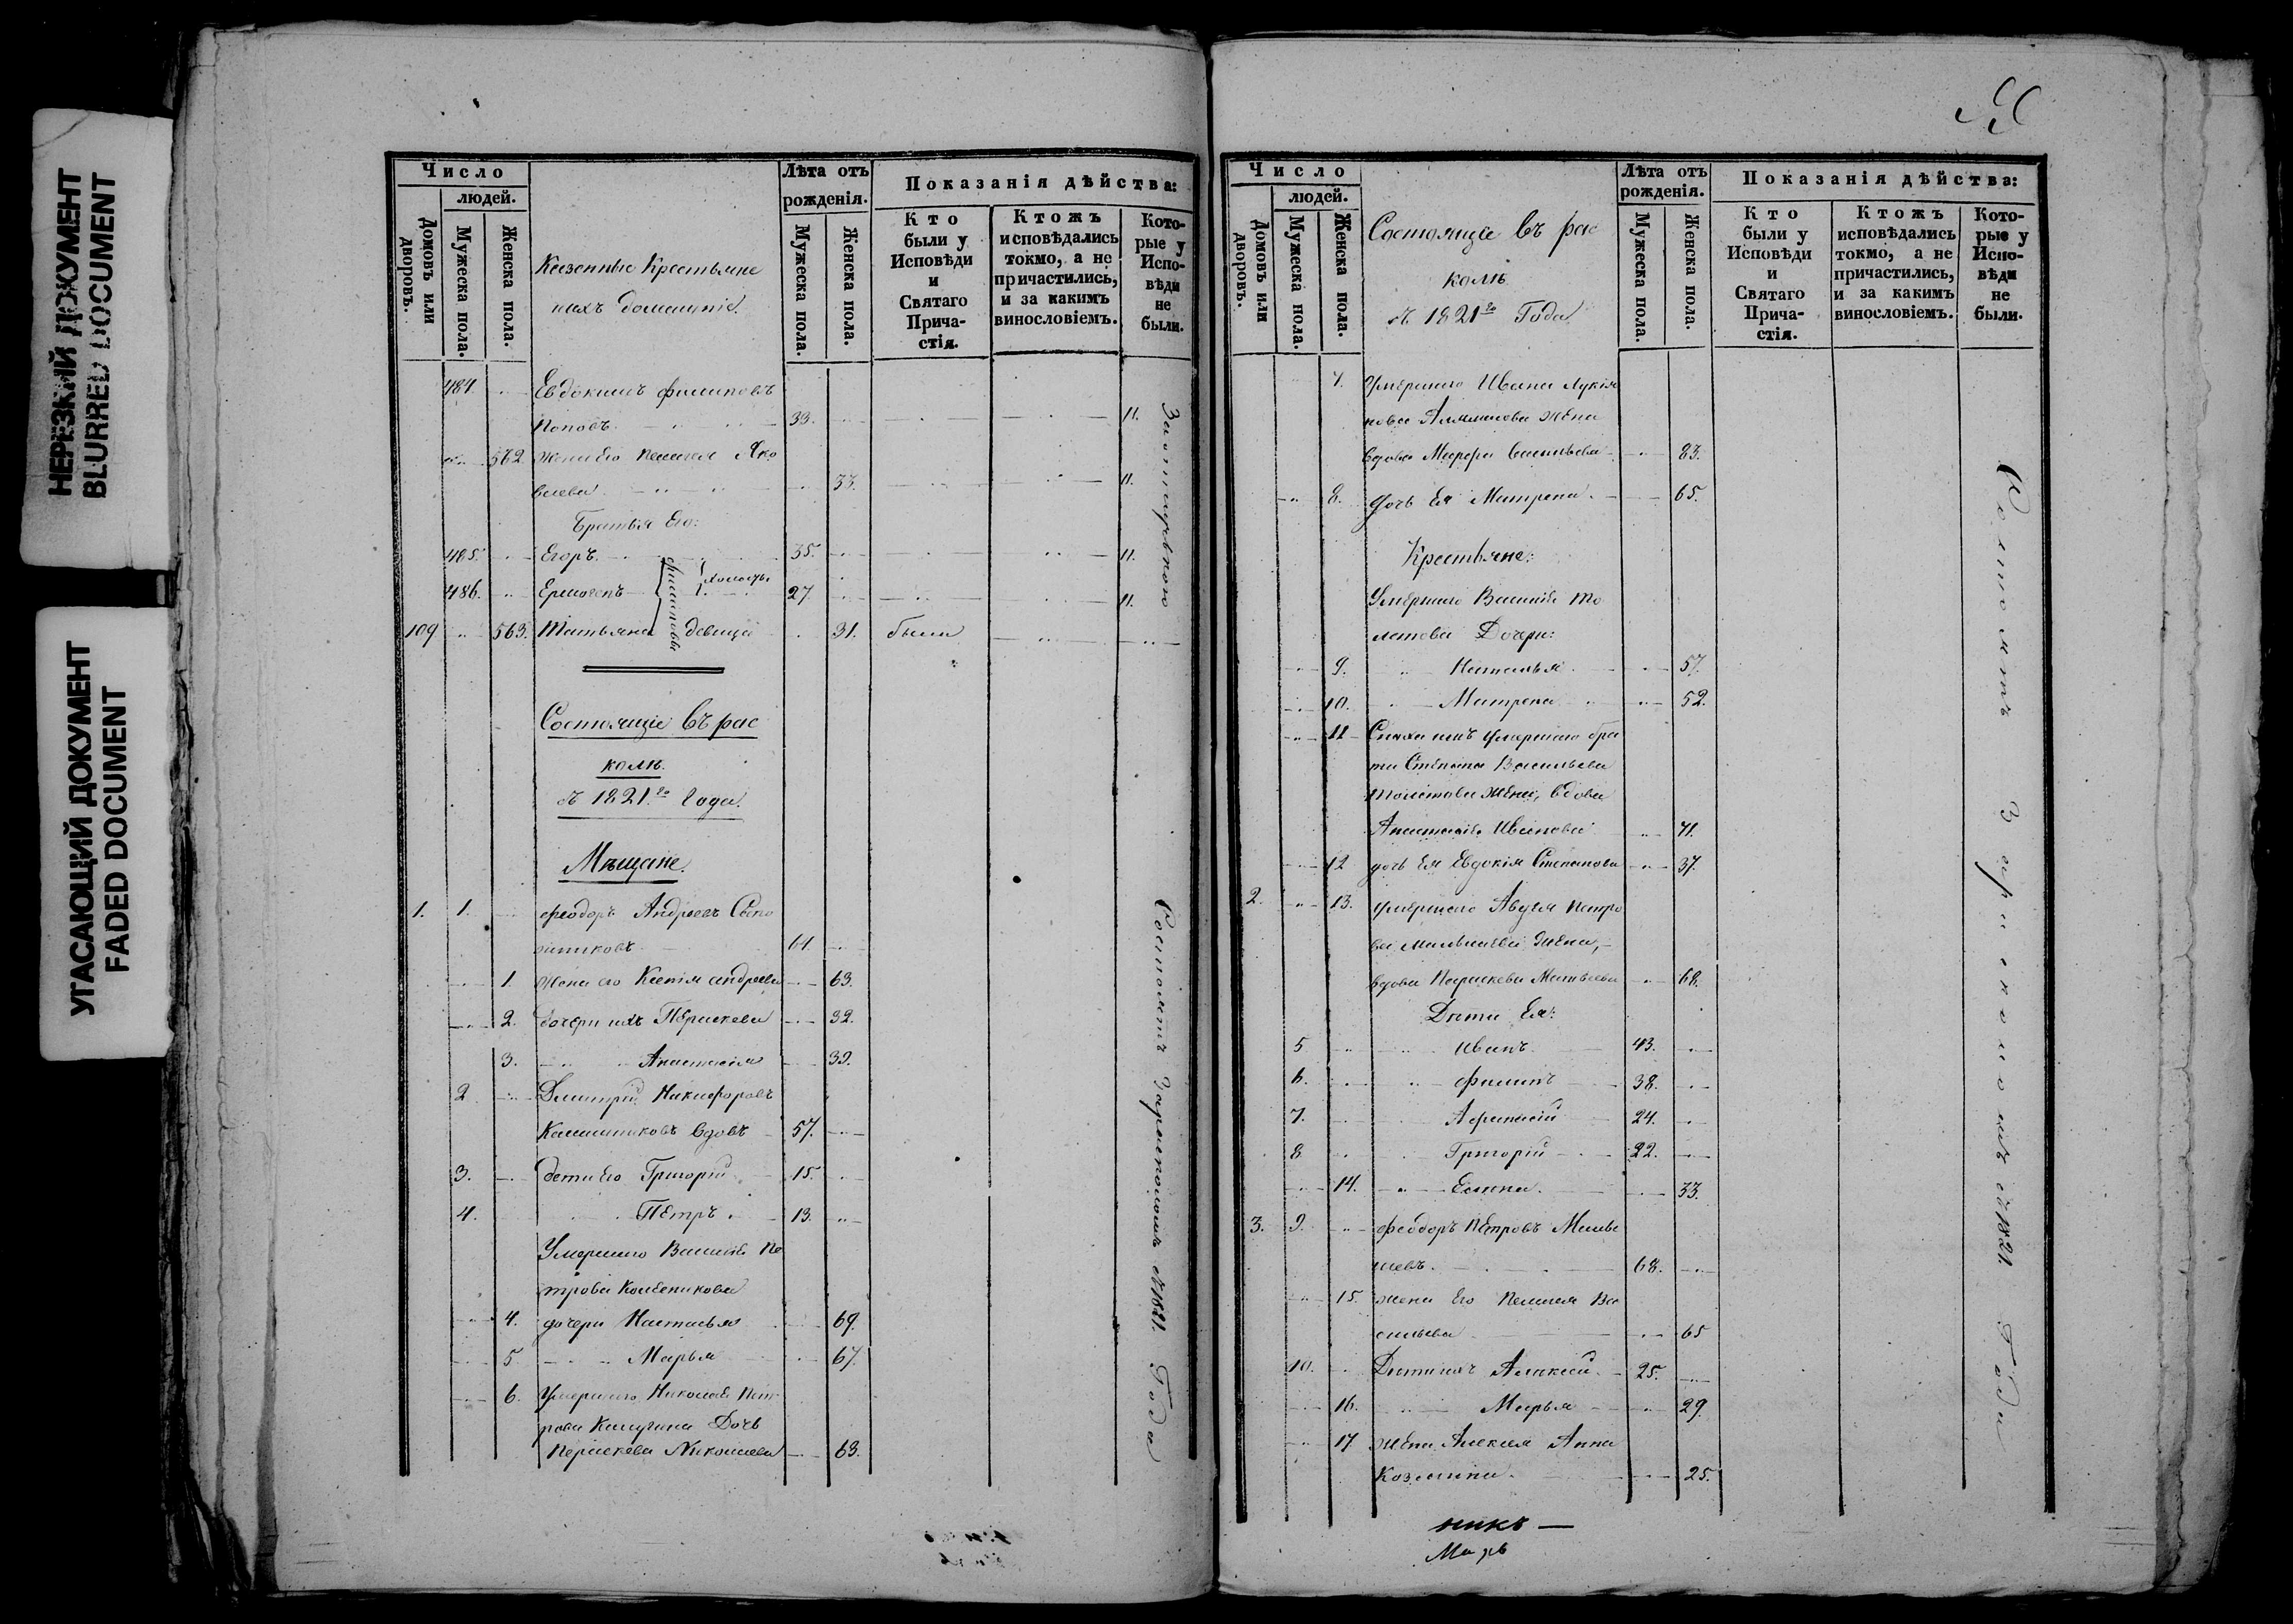 НЕРЕЗКИЙ ДОКУМЕНТ
BLURRED DOCUMENT
УГАСАЮЩИЙ ДОКУМЕНТ
FADED DOCUMENT
Число
людей.
Домовъ или дворовъ.
Мужеска пола.
Женска пола.
Казенные Крестьяне
ихъ домашніе
Лѣта отъ рожденія.
Мужеска пола.
Женска пола.
Показанія дѣйства:
Кто были у Исповѣди и Святаго Прича-стія.
Ктожъ исповѣдались токмо, а не причастились, и за какимъ винословіемъ.
Кото-рые у Испо-вѣди не были.
484. Евдокимъ Филиповъ
Поповъ 33. 11.
562. Жена Его Пелагея Яко
влева 33. 11.
Братья Его:
485. Егоръ 35. 11.
486. Ермогенъ холосты 27. 11.
Филиповы
109 563. Татьяна девица 31. были
Состоящіе въ рас
колѣ
съ 1821го Года.
Мѣщане.
1. 1. Феодоръ Андреевъ
61.
1. Жена его Ксенія Андреева 63.
2. дочери ихъ Параскева 32.
3. Анастасія 39.
2 Дмитрій Никифоровъ
Калашниковъ вдовъ 57.
3. дети Его Григорій 15.
4. Петръ 13.
Умершаго Василія Пе
трова
4. дочери Настасья 69.
5. Марья 67.
6. Умершаго Николая Пет
рова Дочь
Параскева Николаева 63.
Состоятъ въ расколѣ съ 1821 Года
Число
людей.
Домовъ или дворовъ.
Мужеска пола.
Женска пола.
Состоящіе въ рас
колѣ
съ 1821го Года
Лѣта отъ рожденія.
Мужеска пола.
Женска пола.
Показанія дѣйства:
Кто были у Исповѣди и Святаго Прича-стія.
Ктожъ исповѣдались токмо, а не причастились, и за какимъ винословіемъ.
Кото-рые у Испо-вѣди не были.
7. Умершаго Ивана Лукія
нова жена
вдова Марфа Васильева 83.
8. дочь Ея Матрена 65.
Крестьяне:
Умершаго Василія То
лстова Дочери:
9. Наталья 57.
10. Матрена 52.
11 Сноха ихъ умершаго бра
та Степана Васильева
Толстова жена, вдова
Анастасія Иванова 71.
12 дочь Ея Евдокія Степанова 37.
2. 13. Умершаго Авдея Петро
ва жена,
вдова Параскева Матвеева 68.
Дети Ея:
5 Иванъ 43.
6. Филипъ 38.
7. Афанасій 24.
8 Григорій 22.
14. Елена 33.
3. 9. Феодоръ Петровъ
68.
15. Жена Его Пелагея Ва
сильева 65
10. Дети ихъ Алексей 25.
16. Марья 29.
17 Жена Алексея Анна
Козмина 25.
Состоятъ въ расколѣ съ 1821 Года
никъ